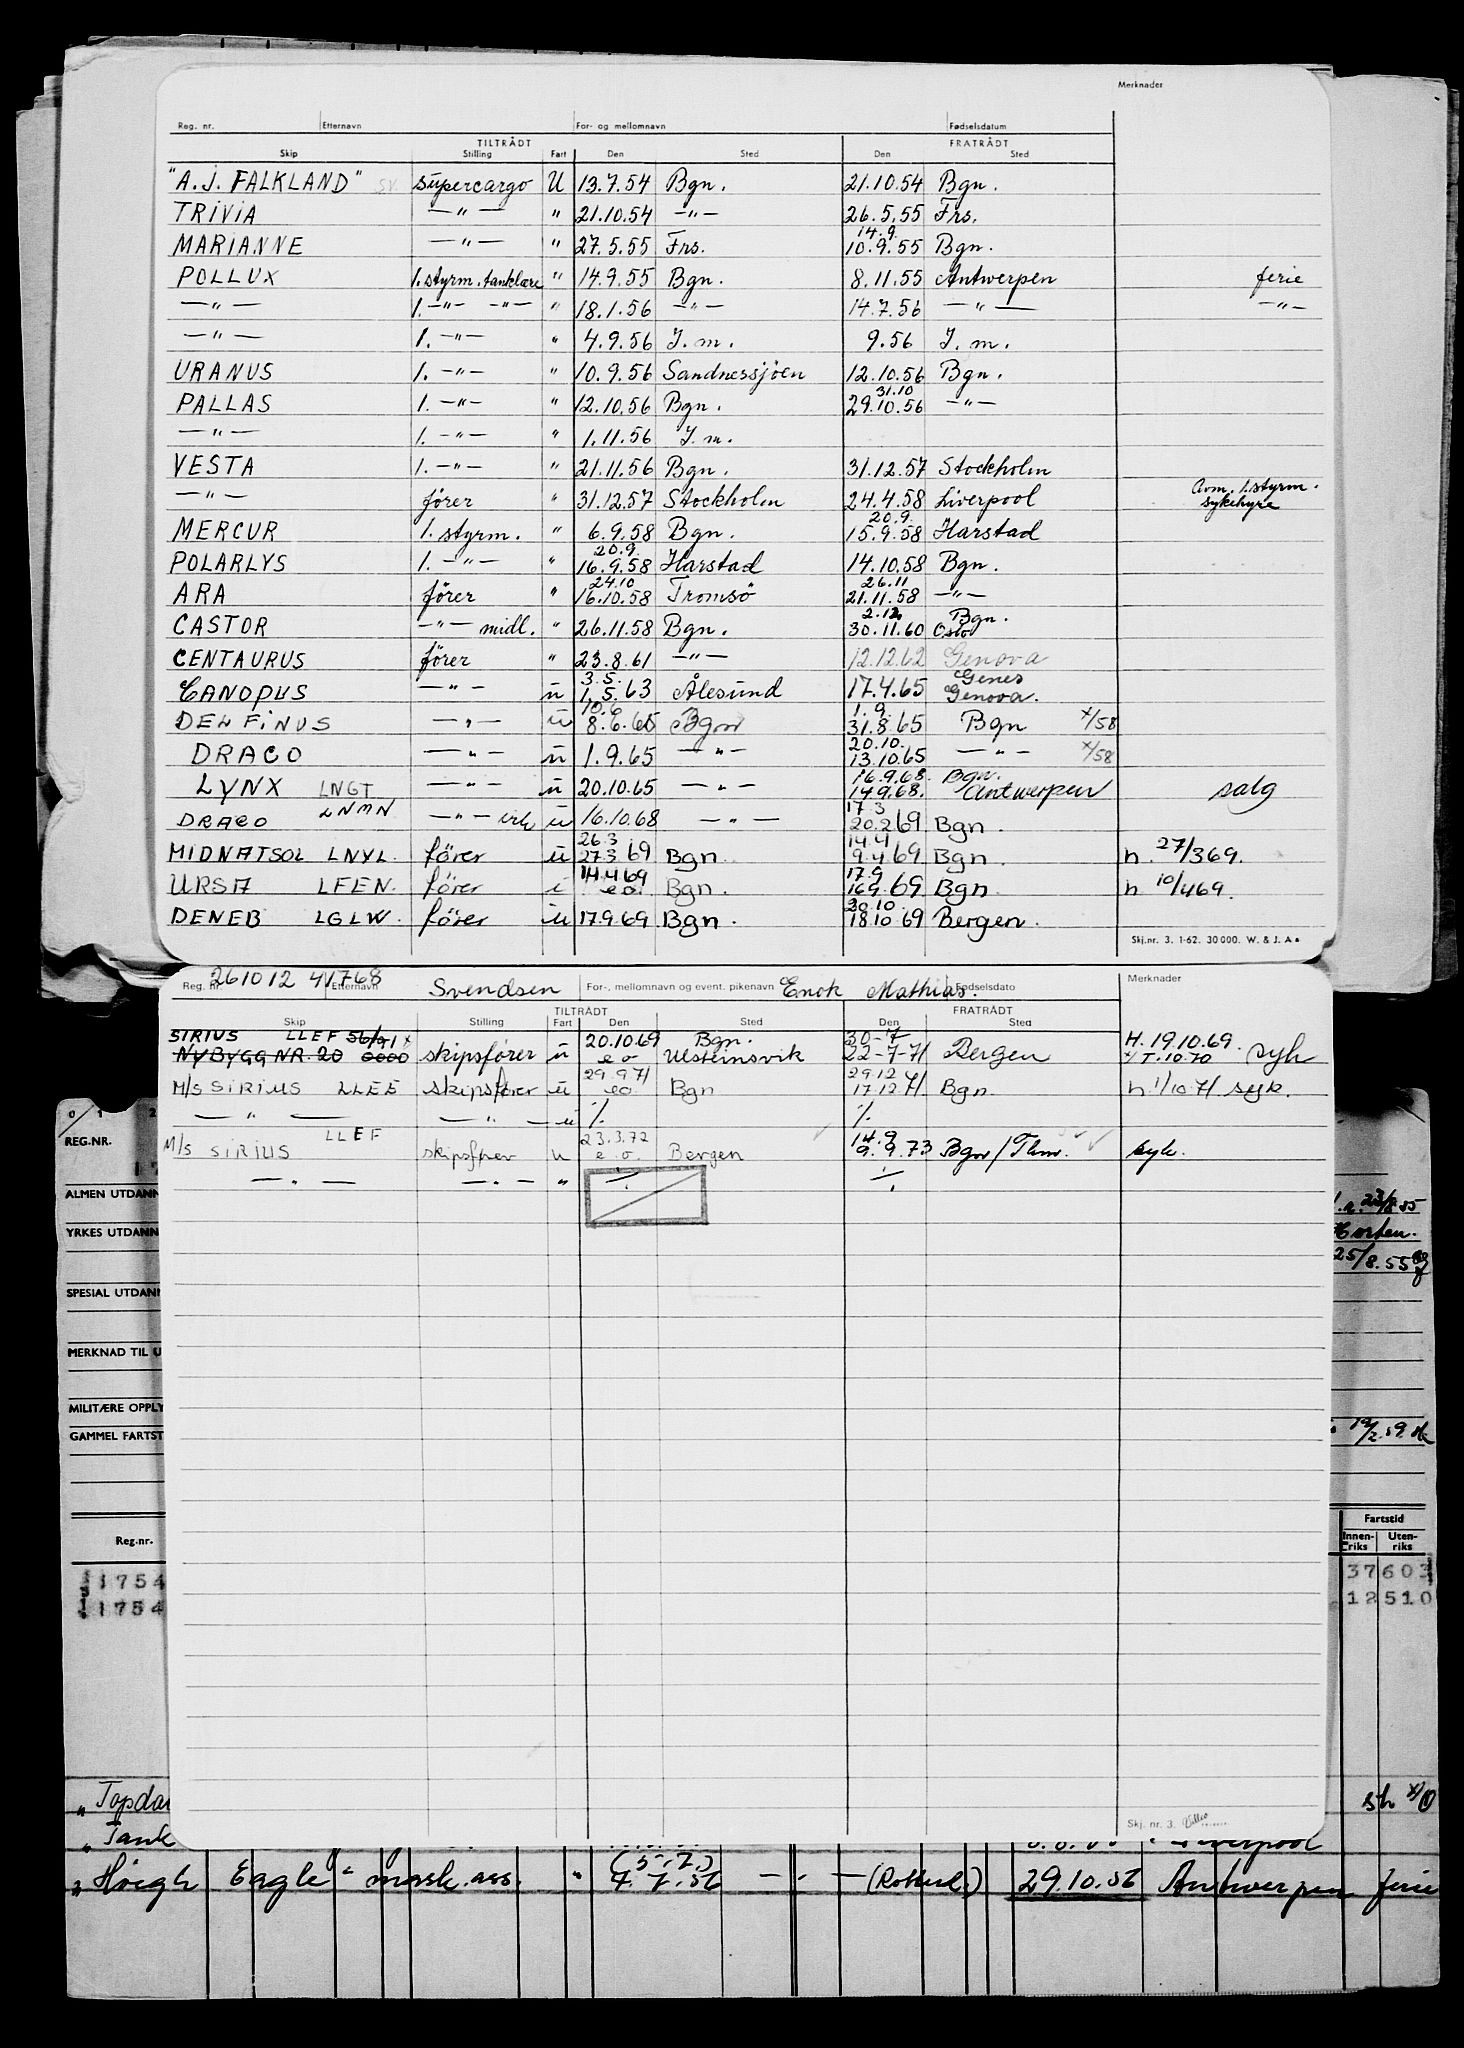 Merknader
Reg. nr. Etternavn For- og mellomnavn Fødselsdatum
TILTRÅDT FRATRÅDT
Skip Stilling Fart Den Sted Den Sted
"A.J. FALKLAND" supercargo U 13.7.54 Bgn. 21.10.54 Bgn.
TRIVIA —"— " 21.10.54 —"— 26.5.55 Frs.
14.9.
MARIANNE —"— " 27.5.55 Frs. 10.9.55 Bgn.
POLLUX 1. styrm. tanklære " 14.9.55 Bgn. 8.11.55 Antwerpen ferie
—"— 1. —"— —"— " 18.1.56 —"— 14.7.56 —"— —"—
—"— 1. —"— " 4.9.56 J. m. 9.56 J. m.
URANUS 1. —"— " 10.9.56 Sandnessjöen 12.10.56 Bgn.
31.10
PALLAS 1. —"— " 12.10.56 Bgn. 29.10.56 —"—
—"— 1. —"— " 1.11.56 J. m.
VESTA 1. —"— " 21.11.56 Bgn. 31.12.57 Stockholm
Avm. 1. styrm.
—"— förer " 31.12.57 Stockholm 24.4.58 Liverpool sykehyre
20.9.
MERCUR 1. styrm. " 6.9.58 Bgn. 15.9.58 Harstad
20.9.
POLARLYS 1. —"— " 16.9.58 Harstad 14.10.58 Bgn.
24.10 26.11
ARA förer " 16.10.58 Tromsö 21.11.58 —"—
2.12 Bgn.
CASTOR —"— midl. " 26.11.58 Bgn. 30.11.60 Oslo
CENTAURUS förer " 23.8.61 —"— 12.12.62 Genova
3.5. Genes
CANOPUS —"— u 1.5.63 Ålesund 17.4.65 Genova.
10.6 1.9.
DELFINUS —"— u 8.6.65 Bgn 31.8.65 Bgn x/58
20.10.
DRACO —"— u 1.9.65 —"— 13.10.65 —"— x/58
16.9.68. Bgn.
LYNX LNGT —"— u 20.10.65 —"— 14.9.68. Antwerpen salg
LNMN 17.3
DRACO —"— u 16.10.68 —"— 20.2.69 Bgn.
26.3 14.4
MIDNATSOL LNYL. förer u 27.3.69 Bgn. 9.4.69 Bgn. h. 27/3 69.
14.4.69 17.9
URSA LFEN. förer i e.o. Bgn. 16.9.69 Bgn. h 10/4 69.
20.10
DENEB LGLW. förer u 17.9.69 Bgn. 18.10.69 Bergen.
Skj.nr. 3. 1-62. 30 000. W. & J. A s
261012 41768
Reg. nr. Etternavn Svendsen For-, mellomnavn og event. pikenavn Enok Mathias. Fødselsdato Merknader
TILTRÅDT FRATRÅDT
Skip Stilling Fart Den Sted Den Sted
SIRIUS LLEF 20.10.69 Bgn. 30-7 H. 19.10.69.
NYBYGG NR. 20 0000 skipsfører u e o Ulsteinsvik 22-7-71 Bergen syk
29.9.71 29.12
M/S SIRIUS LLEF skipsfører u eo Bgn 17.12.71 Bgn. h. 1/10.71 syk.
—"— —"— u ./. ./.
LLEF 23.3.72 14.9
M/S SIRIUS skipsfører u e.o. Bergen 9.9.73 Bgn/ syk.
—"— —"— " ./. ./.
Skj. nr. 3.
0 1 2
REG.NR.
ALMEN UTDANN
YRKES UTDANN
SPESIAL UTDAN
MERKNAD TIL U
MILITÆRE OPPLY
GAMMEL FARTST
Horten.
25/8.55
Fartstid
Reg.nr. Innenriks Utenriks
1754 37603
1754 12510
„ Topda
„ Tank Liverpool
(5.7.)
„ Höegh Eagle " mask.ass. " 4.7.56 —"— (Rotterd.) 29.10.56 Antwerpen ferie